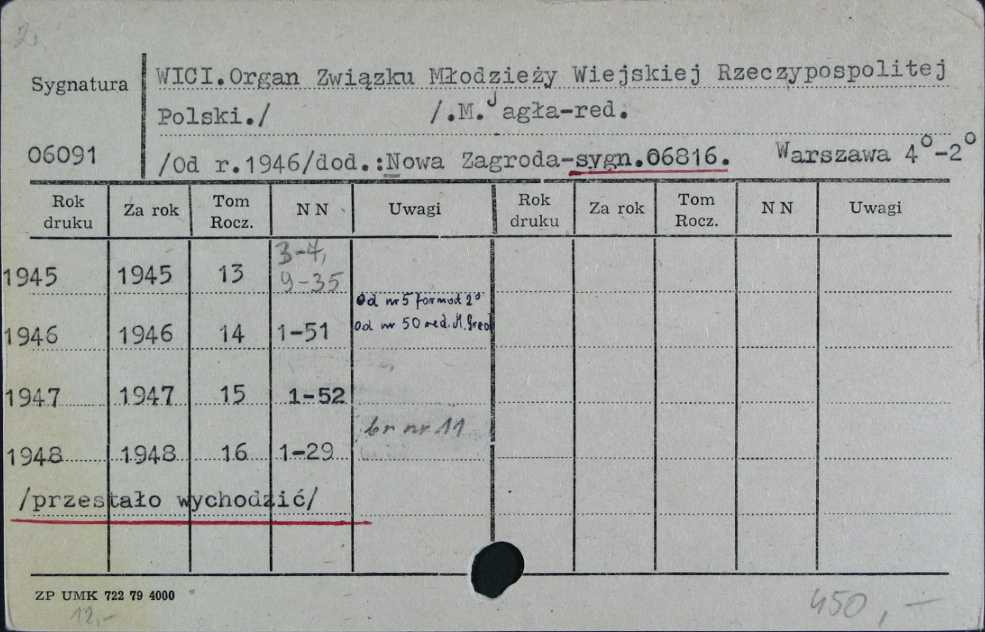 2,
Sygnatura
06091
WICI.Organ Związku Młodzieży Wiejskiej Rzeczypospolitej
Polski./ /.M.Jagła-red.
/Od r.1946/dod.:Nowa Zagroda-sygn.06816. Warszawa 4°-2°
Rok druku Za rok Tom Rocz. NN Uwagi Rok druku Za rok Tom Rocz. NN Uwagi
1945 1945 13 3-4, 9-35
Od nr 5 format 2°
1946 1946 14 1-51 Od nr 50 red. M.
1947 1947 15 1-52
1948 1948 16 1-29 br nr 11
/przestało wychodzić/
ZP UMK 722 79 4000
12,-
450,-